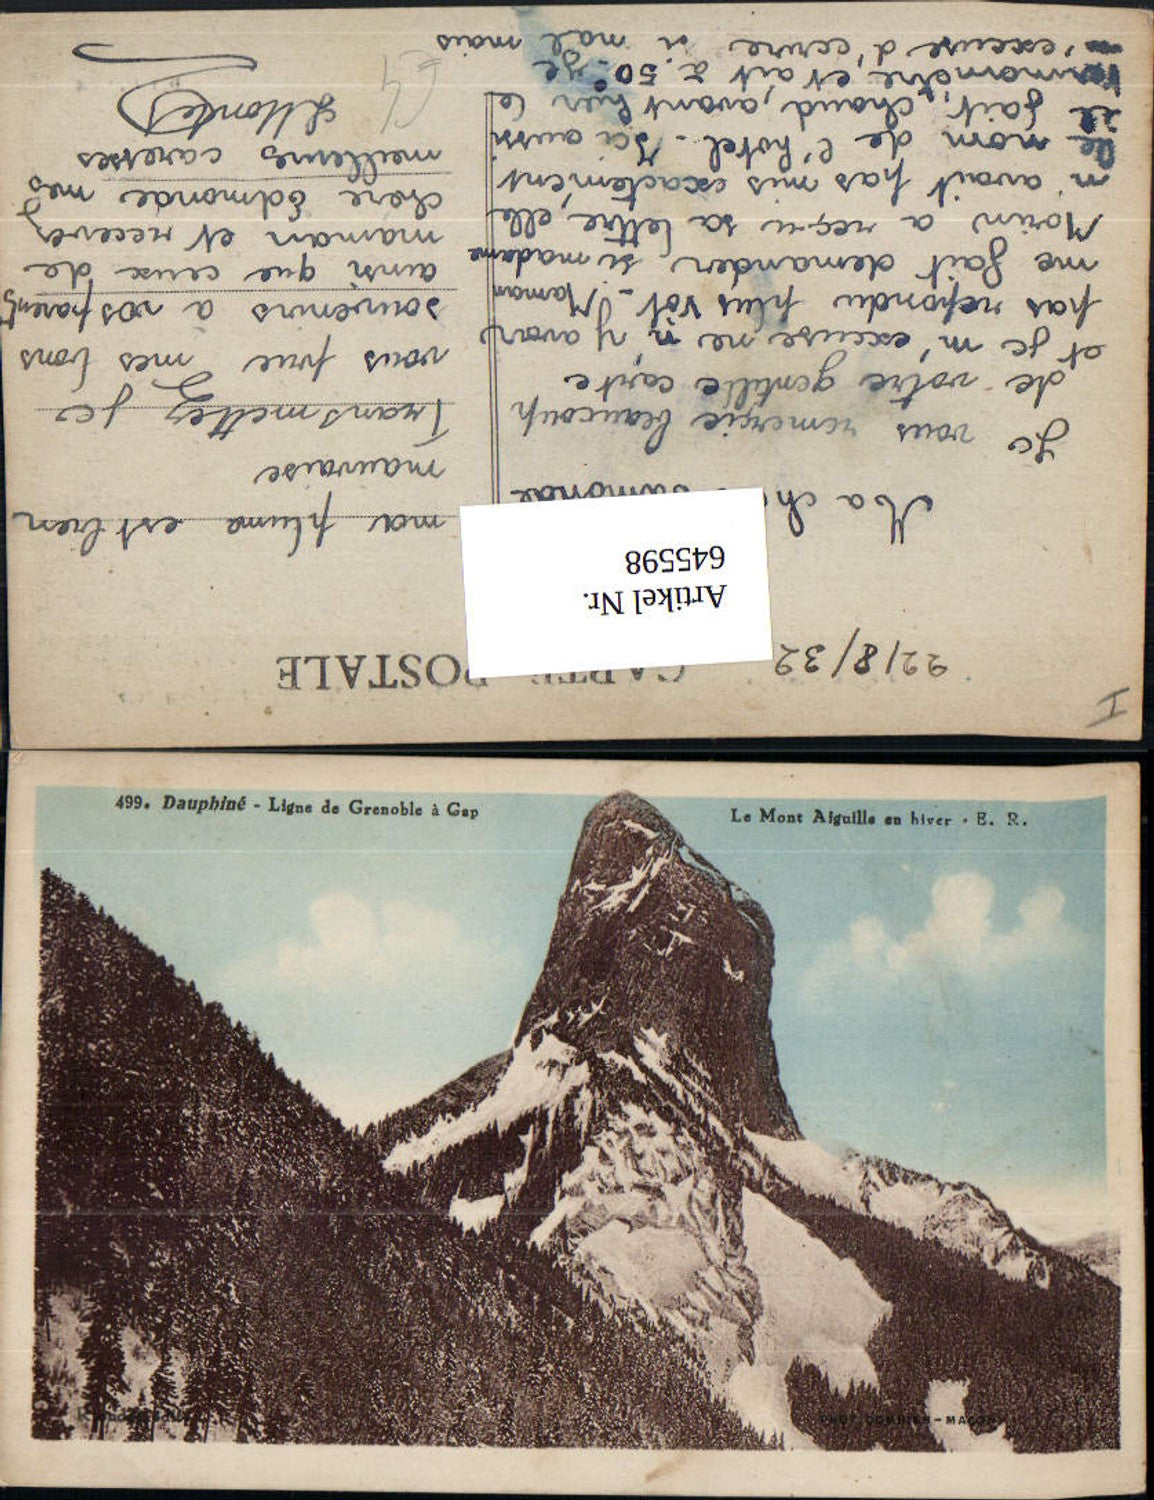 22/8/32
CARTE POSTALE
Artikel Nr.
645598
Ma chère Edmonde
Je vous remercie beaucoup
de votre gentille carte
et je m'excuse ne n'y avoir
pas répondu plus tôt - Maman
me fait demander si madame
Morin a reçu sa lettre, elle
n'avait pas mis exactement
le nom de l'hôtel - Ici aussi
il fait, chaud, avant hier le
termomètre était à 50. Je
m'excuse d'ecrire si mal mais
ma plume est bien
mauvaise
Transmettez je
vous prie mes bons
souvenirs à vos parents
ainsi que ceux de
maman et recevez
chère Edmonde mes
meilleures caresses
I
499. Dauphiné - Ligne de Grenoble à Gap
Le Mont Aiguille en hiver - E. R.
PHOT. COMBIER - MACON